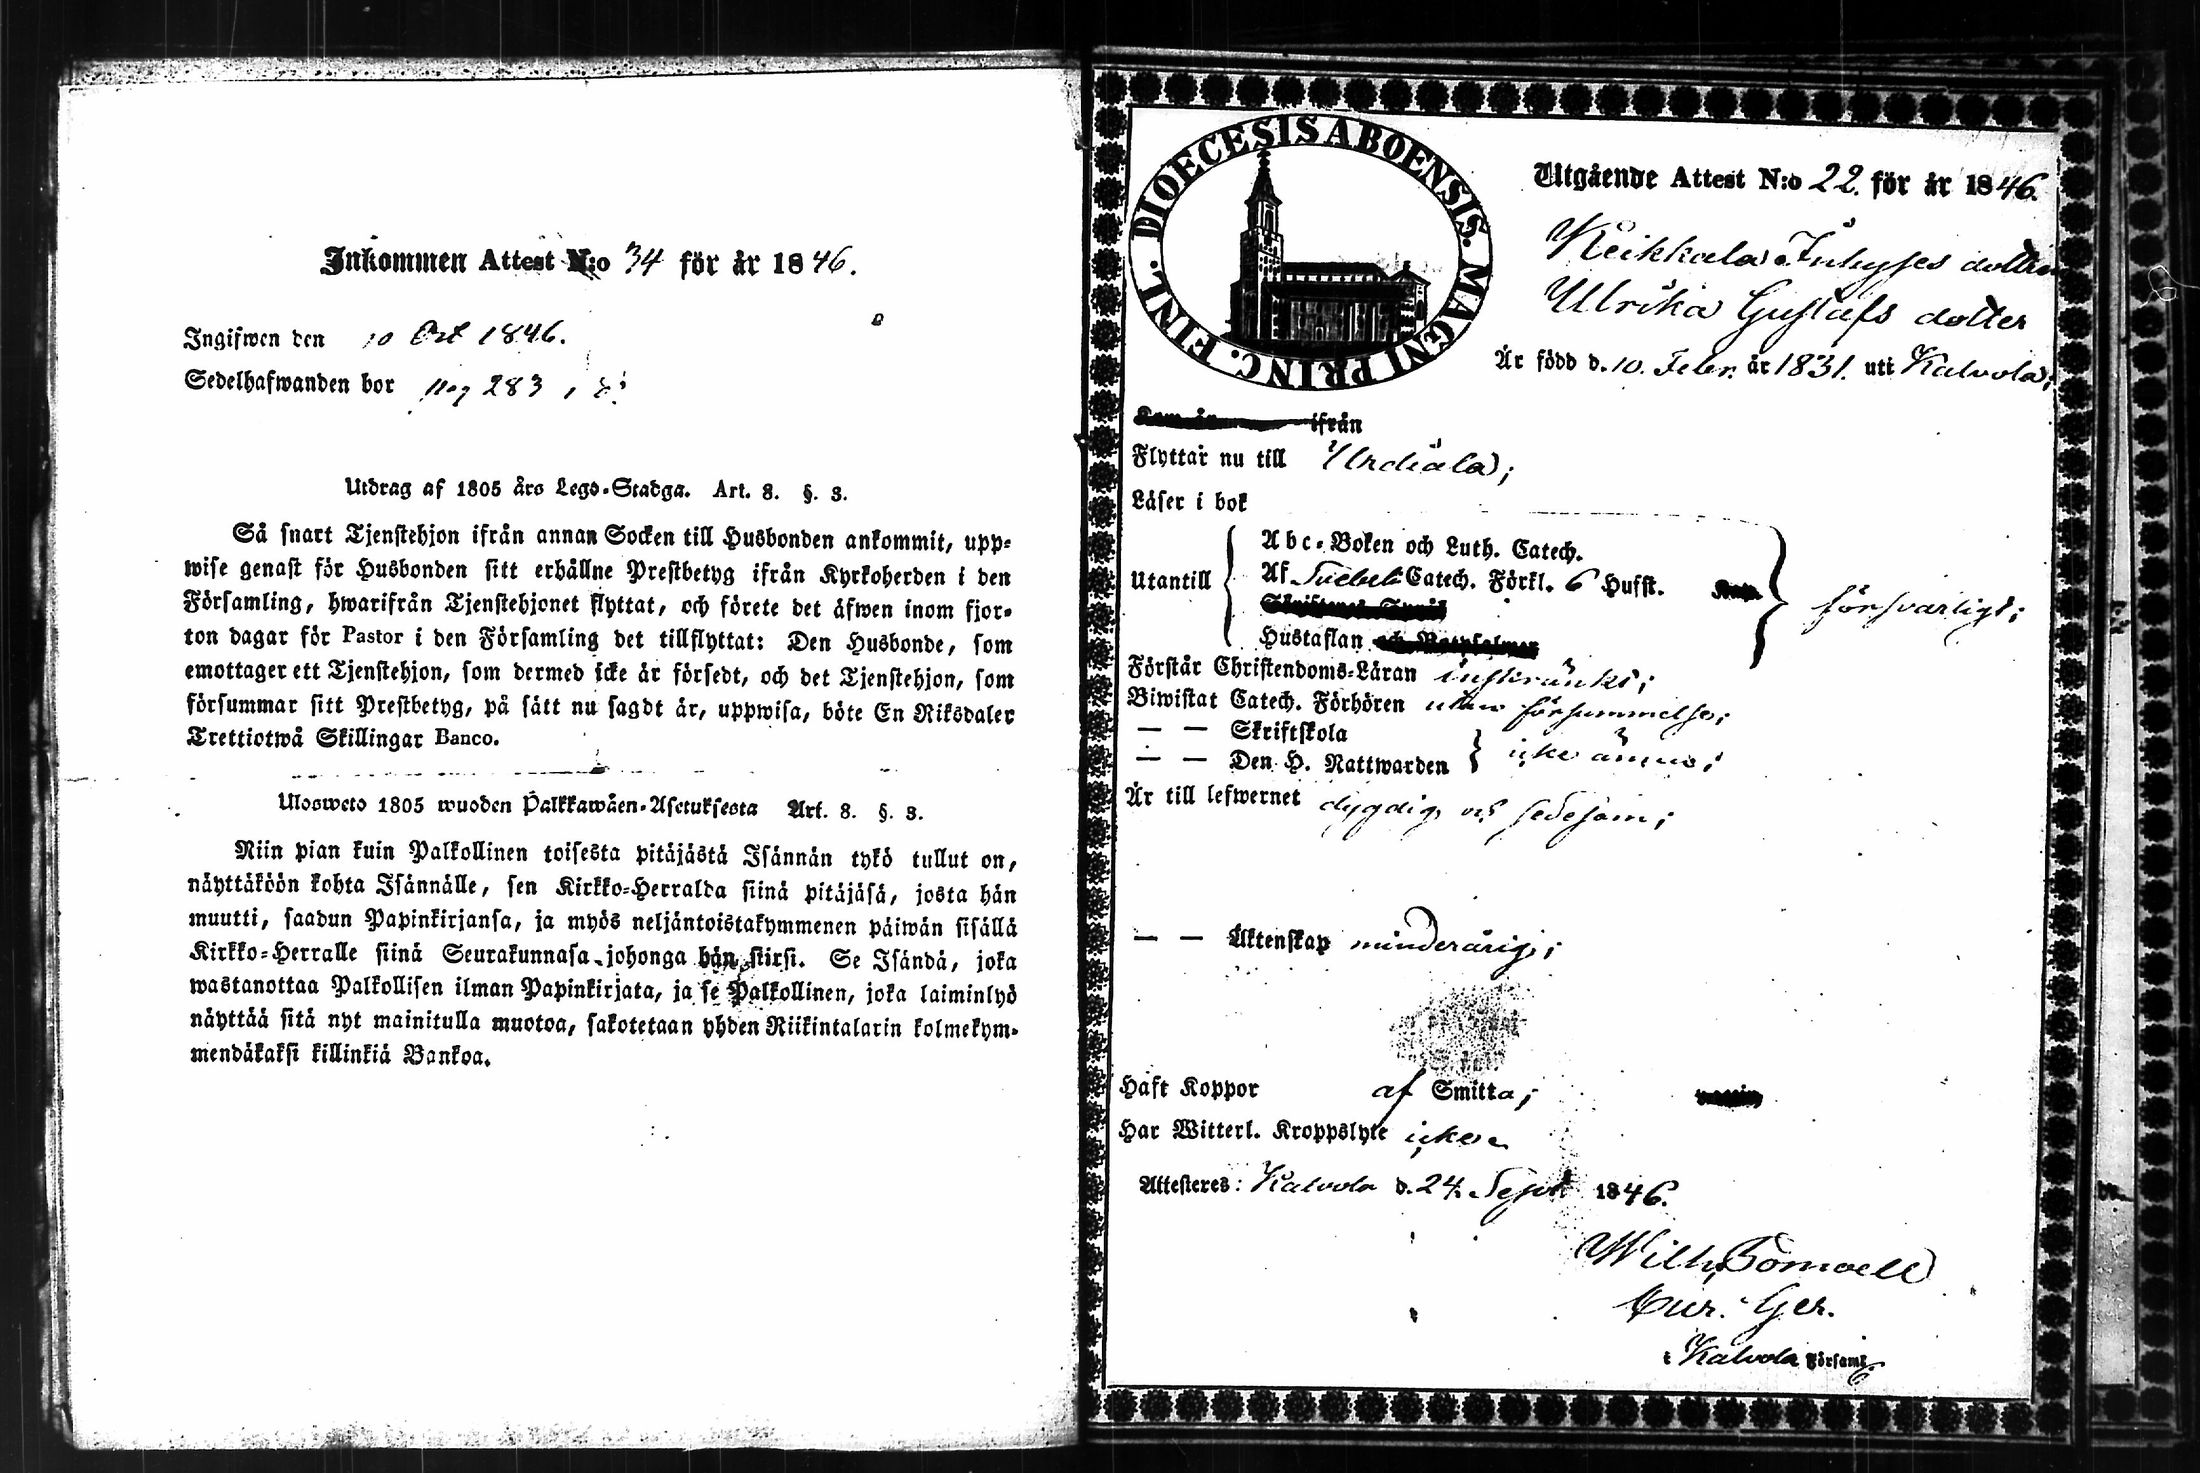 Inkommen Attest N:o 34 för år 1846.
Ingifwen den 10 Oct 1846.
Sedelhafwanden bor pag 283
Utdrag af 1805 års Lego-Stadga. Art. 8. §. 3.
Så snart Tjenstehjon ifrån annan Socken till Husbonden ankommit, upp-
wise genast för Husbonden sitt erhållne Prestbetyg ifrån Kyrkoherden i den
Församling, hwarifrån Tjenstehjonet flyttat, och förete det äfwen inom fjor-
ton dagar för Pastor i den Församling det tillflyttat: Den Husbonde, som
emottager ett Tjenstehjon, som dermed icke är försedt, och det Tjenstehjon, som
försummar sitt Prestbetyg, på sätt nu sagdt är, uppwisa, böte En Riksdaler
Trettiotwå Skillingar Banco.
Ulosweto 1805 wuoden Palkkawäen-Asetuksesta Art. 8. §. 3.
Niin pian kuin Palkollinen toisesta pitäjästä Isännän tykö tullut on,
näyttäköön kohta Isännälle, sen Kirkko-Herralda siinä pitäjäsä, josta hän
muutti, saadun Papinkirjansa, ja myös neljäntoistakymmenen päiwän sisällä
Kirkko-Herralle siinä Seurakunnasa johonga hän siirsi. Se Isändä, joka
wastanottaa Palkollisen ilman Papinkirjata, ja se Palkollinen, joka laiminlyö
näyttää sitä nyt mainitulla muotoa, sakotetaan yhden Riikintalarin kolmekym-
mendäkaksi killinkiä Bankoa.
DIOECESIS ABOENSIS. MAGNI PRINC. FINL.
Utgående Attest N:o 22. för år 1846.
Keikkala Inhyses dottren
Ulrika Gustafs dotter
Är född d. 10. Febr. år 1831. uti Kalvola;
Kom år ifrån
Flyttar nu till Urdiala;
Läser i bok
Utantill
Abc-Boken och Luth. Catech.
Af Svebeli Catech. Förkl. 6 Hufst.
Hustaflan
försvarligt;
Förstår Christendoms-Läran inskränkt;
Biwistat Catech. Förhören utan försummelse;
— — Skriftskola
— — Den H. Nattwarden icke ännu;
Är till lefwernet dygdig och sedesam;
— — Äktenskap minderårig;
Haft Koppor af Smitta;
Har Witterl. Kroppslyte icke
Attesteres: Kalvola d. 24. Sept 1846.
Wilh. Bomvell
Cur. Ger.
i Kalvola Församl.